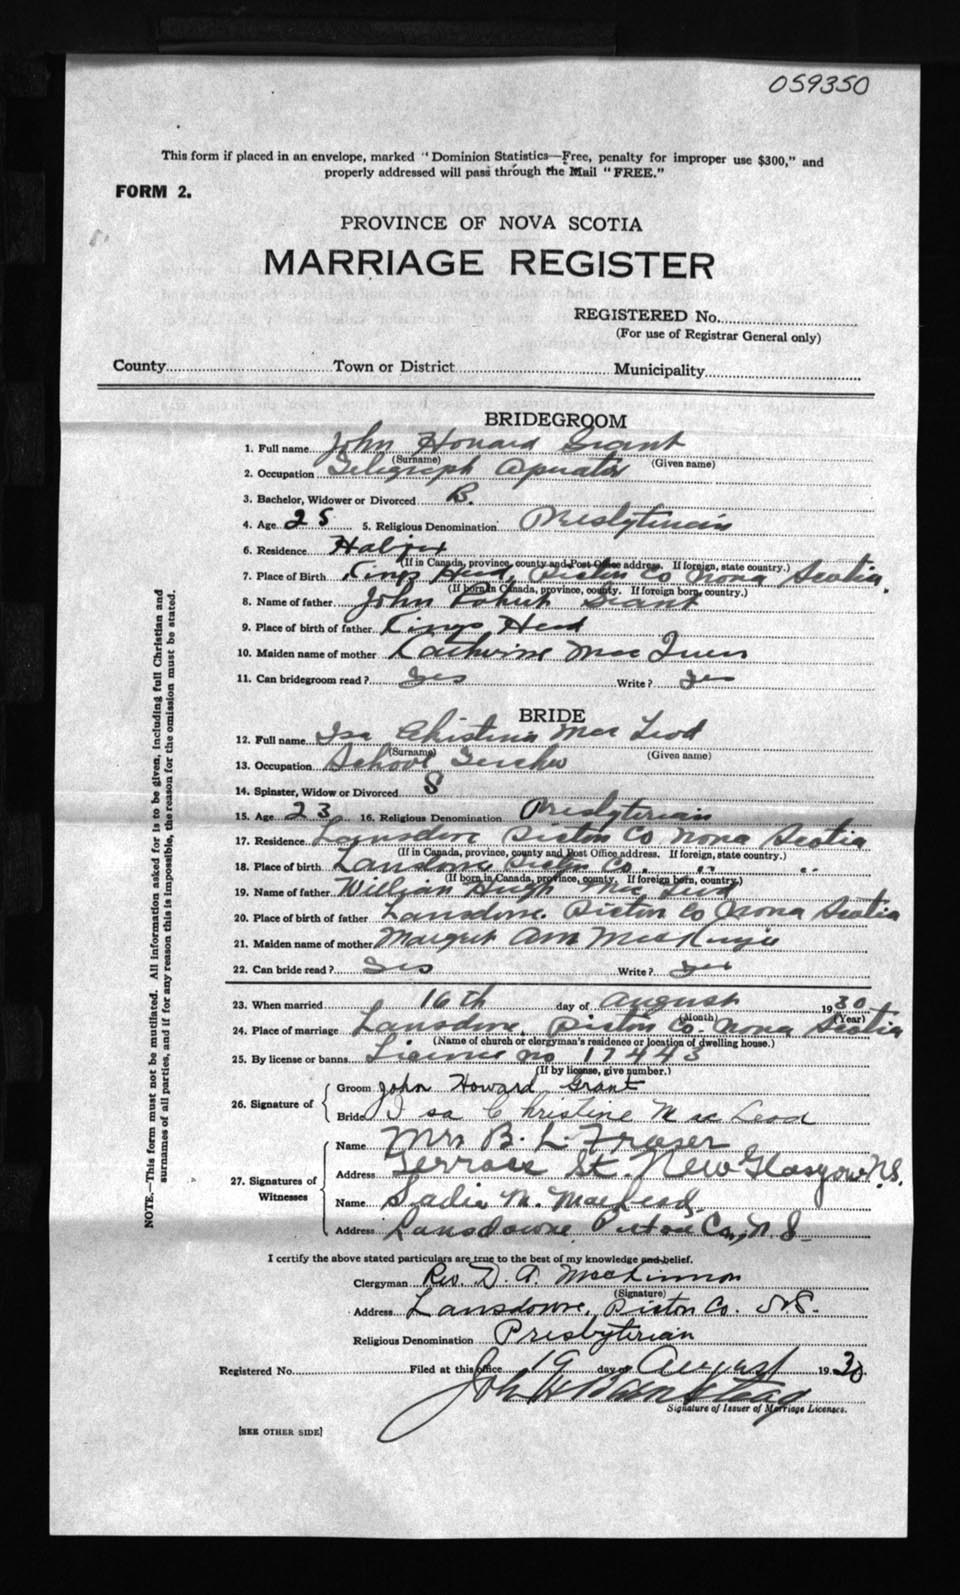 059350
This form if placed in an envelope, marked "Dominion Statistics—Free, penalty for improper use $300," and
properly addressed will pass through the Mail "FREE."
FORM 2.
PROVINCE OF NOVA SCOTIA
MARRIAGE REGISTER
REGISTERED No.
(For use of Registrar General only)
County Town or District Municipality
BRIDEGROOM
1. Full name John Howard Grant
(Surname) (Given name)
2. Occupation Telegraph Operator
3. Bachelor, Widower or Divorced B.
4. Age 25 5. Religious Denomination Presbyterian
6. Residence Halifax
(If in Canada, province, county and Post Office address. If foreign, state country.)
7. Place of Birth Kings Head, Pictou Co Nova Scotia.
(If born in Canada, province, county. If foreign born, country.)
8. Name of father John Robert Grant
9. Place of birth of father Kings Head
10. Maiden name of mother Catherine Mac
11. Can bridegroom read? Yes Write? Yes
BRIDE
12. Full name Isa Christina Mac Leod
(Surname) (Given name)
13. Occupation School Teacher
14. Spinster, Widow or Divorced S
15. Age 23 16. Religious Denomination Presbyterian
17. Residence Lansdowne Pictou Co Nova Scotia
(If in Canada, province, county and Post Office address. If foreign, state country.)
18. Place of birth Lansdowne Pictou Co. " "
(If born in Canada, province, county. If foreign born, country.)
19. Name of father William Hugh Mac Leod
20. Place of birth of father Lansdowne. Pictou Co Nova Scotia
21. Maiden name of mother Margret Ann MacKenzie
22. Can bride read? Yes Write? Yes
23. When married 16th day of August 1930
(Month) (Year)
24. Place of marriage Lansdowne, Pictou Co. Nova Scotia
(Name of church or clergyman's residence or location of dwelling house.)
25. By license or banns License no 17443
(If by license, give number.)
26. Signature of
Groom John Howard Grant
Bride Isa Christine MacLeod
27. Signatures of Witnesses
Name Mrs B. L. Fraser
Address Terrace St. New Glasgow N.S.
Name Sadie M. MacLeod
Address Lansdowne Pictou Co., N.S.
I certify the above stated particulars are true to the best of my knowledge and belief.
Clergyman Rev. D. A. MacKinnon
(Signature)
Address Lansdowne, Pictou Co. N.S.
Religious Denomination Presbyterian
Registered No. Filed at this office 19 day of August 1930
Signature of Issuer of Marriage Licenses.
[SEE OTHER SIDE]
NOTE.—This form must not be mutilated. All information asked for is to be given, including full Christian and
surnames of all parties, and if for any reason this is impossible, the reason for the omission must be stated.